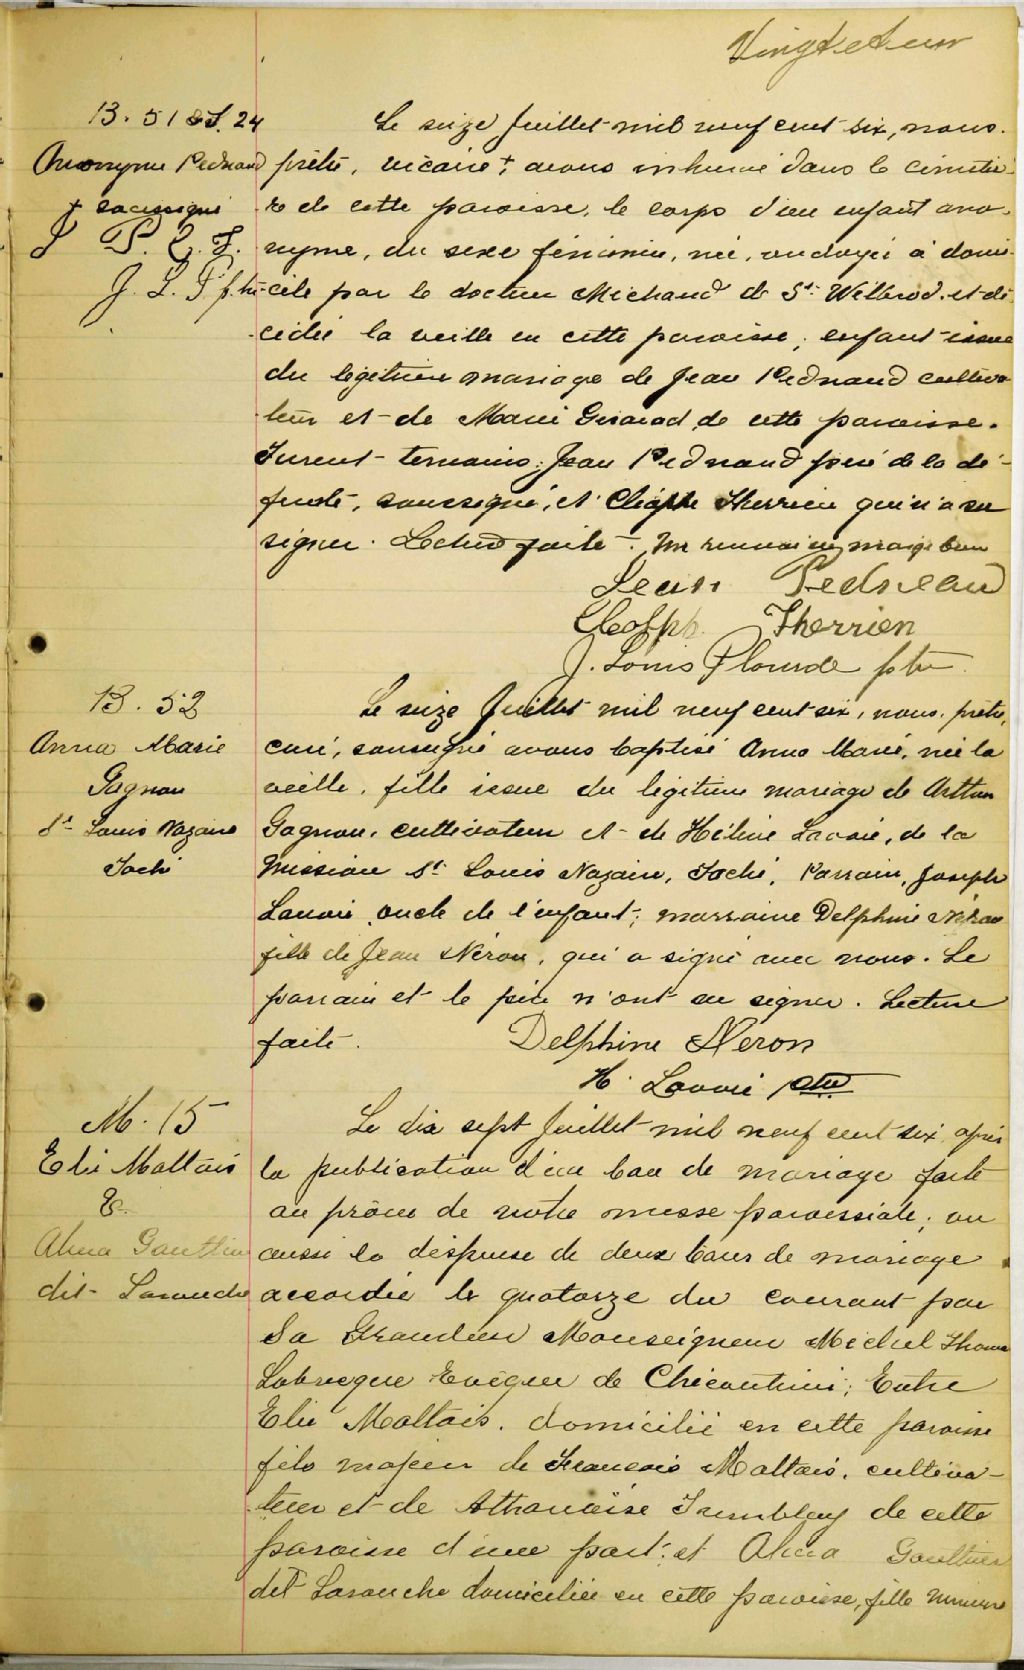 Vingt et un
B. 51 & S. 24
Anonyme Pednaud
+ soussigné
J P. C. T.
J. L. P ptre
Le seize Juillet mil neuf cent six, nous.
prêtre, vicaire + avons inhumé dans le cimetiè-
re de cette paroisse, le corps d'un enfant ano-
nyme, du sexe féminin, née, ondoyée à domi-
cile par le docteur Michaud de St. Wilbrod. et dé-
cédée la veille en cette paroisse, enfant issue
du légitime mariage de Jean Pednaud cultiva-
teur et de Marie Girard de cette paroisse.
Furent témoins; Jean Pednaud père de la dé-
funte, soussigné, et Cléophe Therrien qui n'a su
signer. Lecture faite. Un renvoi en marge bon
Jean Pedneaud
Cleophe Therrien
J. Louis Plourde ptre
B. 52
Anna Marie
Gagnon
St Louis Nazaire
Taché
Le seize Juillet mil neuf cent six, nous, prêtre,
curé, soussigné avons baptisé Anna Marie, née la
veille, fille issue du légitime mariage de Arthur
Gagnon, cultivateur et de Hélène Lavoie, de la
mission St. Louis Nazaire, Taché, Parrain, Joseph
Lavoie oncle de l'enfant; marraine Delphine Néron
fille de Jean Néron, qui a signé avec nous. Le
parrain et le père n'ont su signer. Lecture
faite.
Delphine Neron
H. Lavoie ptre
M. 15
Elie Maltais
&
Alma Gauthier
dit Larouche
Le dix sept Juillet mil neuf cent six, après
la publication d'un ban de mariage faite
au prône de notre messe paroissiale; vu
aussi la dispense de deux bans de mariage
accordée le quatorze du courant par
Sa Grandeur Monseigneur Michel Thomas
Labrecque Evêque de Chicoutimi; Entre
Elie Maltais, domicilié en cette paroisse
fils majeur de François Maltais, cultiva-
teur et de Athanaïse Tremblay de cette
paroisse d'une part; et Alma Gauthier
dit Larouche domiciliée en cette paroisse, fille mineure